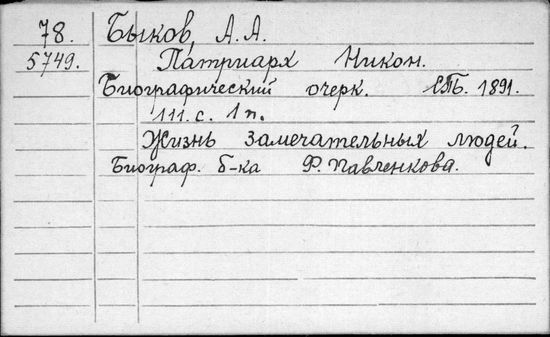 78. Быков, А. А.
5749. Патриарх Никон.
Биографический очерк. СПБ. 1891.
111. с. 1 п.
Жизнь замечательных людей.
Биограф. б-ка Ф. Павленкова.